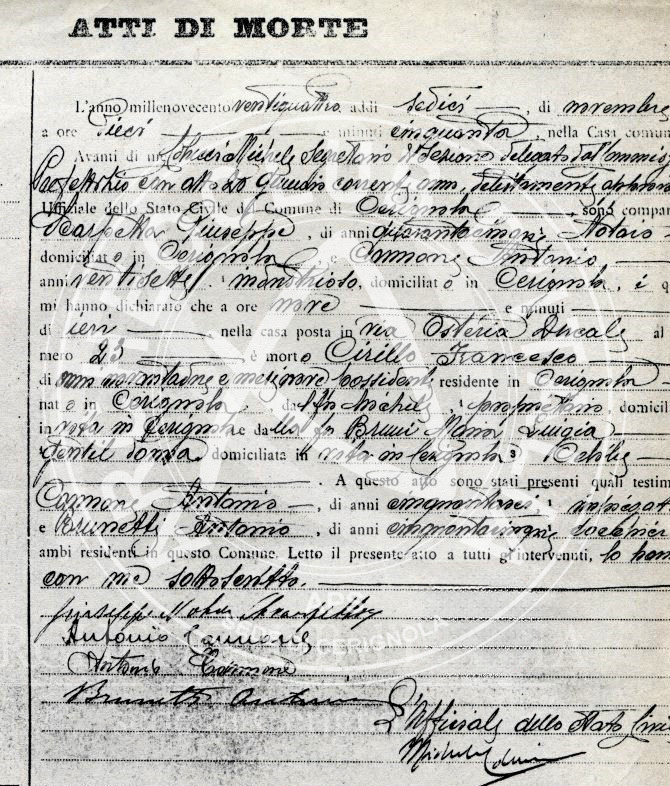 ATTI DI MORTE
L'anno millenovecento ventiquattro addì sedici, di novembre
a ore dieci e minuti cinquanta, nella Casa comun
Avanti di me Michele Segretario di Sezione delegato dal
Prefettizio con atto 20 corrente anno,
Uffiiciale dello Stato Civile del Comune di Cerignola, sono compar
Scarpetta Giuseppe, di anni quarantacinque Notaro
domiciliato in Cerignola, e Cannone Antonio
anni ventisette, industrioso, domiciliato in Cerignola, i q
mi hanno dichiarato che a ore nove e minuti
di ieri, nella casa posta in via Osteria Ducale al
mero 23, è morto Cirillo Francesco
di anni possidente, residente in Cerignola
nato in Cerignola, da fu Michele, proprietario, domicil
in vita in Cerignola e da fu Bruni Maria Luigia
gentil donna domiciliata in vita in Cerignola Celibe
A questo atto sono stati presenti quali testim
Cannone Antonio, di anni
e Brunetti Antonio, di anni
ambi residenti in questo Comune. Letto il presente atto a tutti gl'intervenuti, lo han
con me sottoscritto.
Giuseppe Notar Scarpetta
Antonio Cannone
Antonio Cannone
Brunetti Antonio
L'Uffiziale dello Stato Civi
Michele
CERIGNOLA